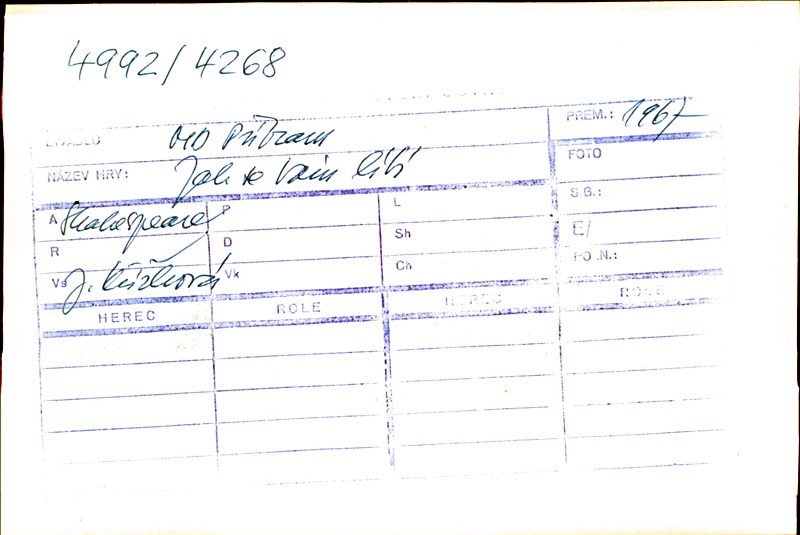 4992/4268
DIVADLO MD Příbram PREM.: 1967
NÁZEV HRY: Jak se Vám líbí FOTO
S.G.:
A Shakespeare P L
E/
R D Sh
PO.N.:
Vs J. Vk Ch
HEREC ROLE HEREC ROLE